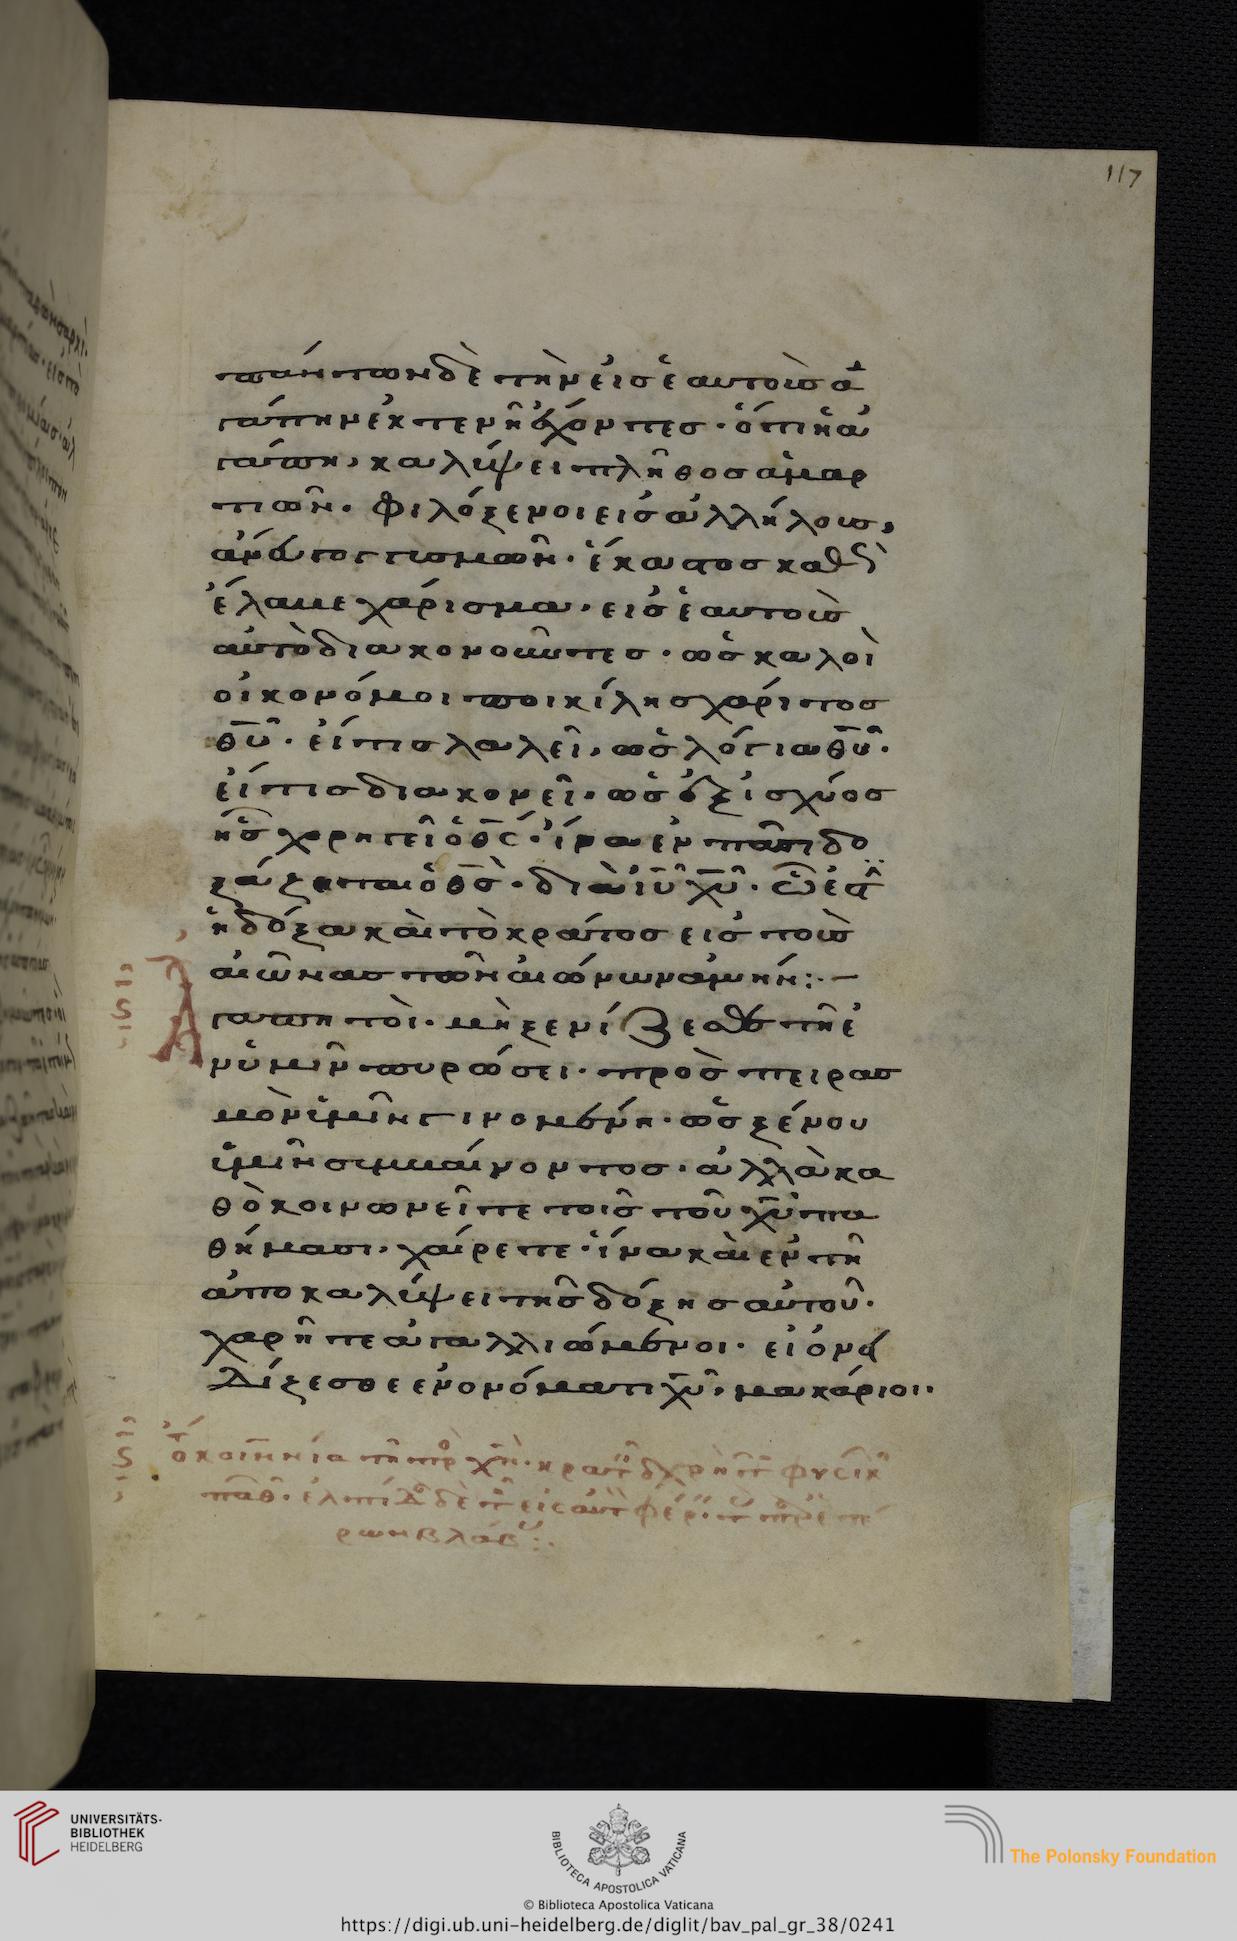 117
πάντων δὲ τὴν εἰς ἑαυτοὺς ἀ
γάπην ἐκτενῆ ἔχοντες· ὅτι ἡ ἀ
γάπη, καλύψει πλῆθος ἁμαρ
τιῶν· φιλόξενοι εἰς ἀλλήλους,
ἄνευ γογγυσμῶν· ἕκαστος καθὼ
ἔλαβε χάρισμα· εἰς ἑαυτοὺς
αὐτὸ διακονοῦντες· ὡς καλοὶ
οἰκονόμοι ποικίλης χάριτος
θυ· εἴ τις λαλεῖ, ὡς λόγια θυ·
εἴ τις διακονεῖ· ὡς ἐξ ἰσχύος
ἧς χορηγεῖ ὁ θς· ἵνα ἐν πᾶσι δο
ξάζηται ὁ θς· διὰ ιυ χυ· ὧ ἐστ
ἡ δόξα καὶ τὸ κράτος εἰς τοὺς
αἰῶνας τῶν αἰώνων ἀμήν:· —
Αγαπητοὶ· μὴ ξενίζεσθε τῆ ἐ
ν ὑμῖν πυρώσει· πρὸς πειρασ
μὸν ὑμῖν γινομένη· ὡς ξένου
ὑμῖν συμβαίνοντος· ἀλλὰ κα
θὸ κοινωνεῖτε τοῖς τοῦ χυ πα
θήμασι· χαίρετε· ἵνα καὶ ἐν τῆ
ἀποκαλύψει τῆς δόξης αὐτοῦ·
χαρῆτε ἀγαλλιώμενοι· εἰ ὀνει
δίζεσθε ἐν ὀνόματι χυ, μακάριοι·
UNIVERSITÄTS-
BIBLIOTHEK
HEIDELBERG
BIBLIOTECA APOSTOLICA VATICANA
The Polonsky Foundation
© Biblioteca Apostolica Vaticana
https://digi.ub.uni-heidelberg.de/diglit/bav_pal_gr_38/0241